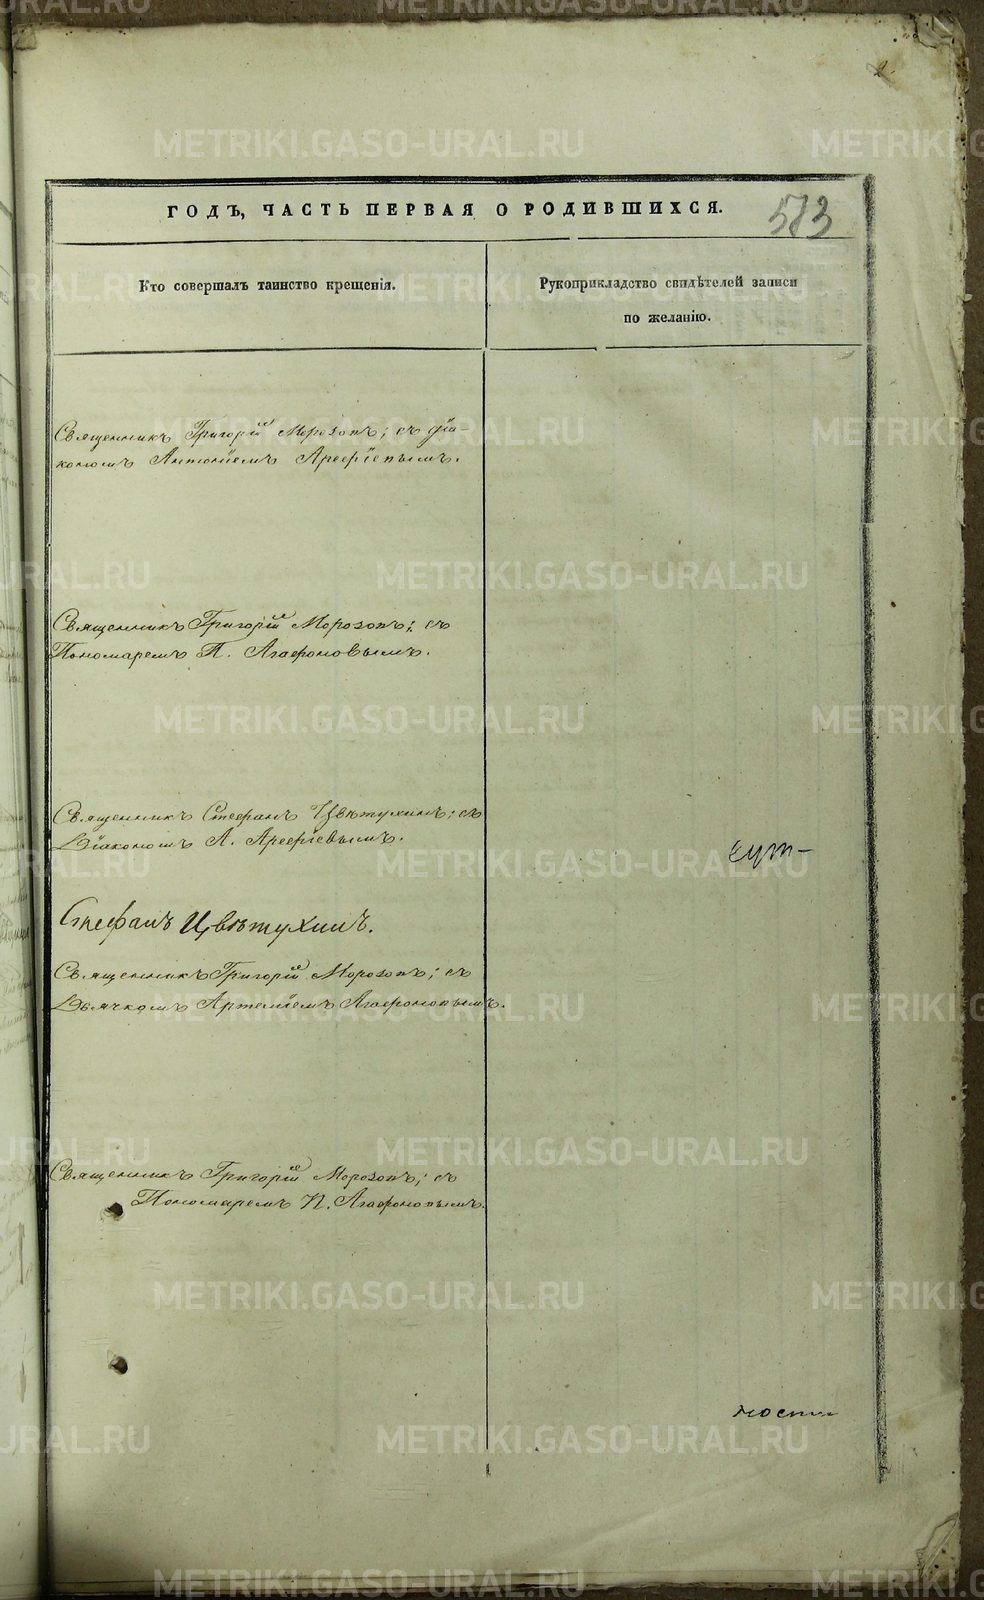 ГОДЪ, ЧАСТЬ ПЕРВАЯ О РОДИВШИХСЯ. 583
Кто совершалъ таинство крещенія.
Рукоприкладство свидѣтелей записи
по желанію.
Священникъ Григорій Морозовъ; съ Діа-
кономъ Антоніемъ Арефіевымъ.
Священникъ Григорій Морозовъ; съ
Пономаремъ П. Агафоновымъ.
Священникъ Стефанъ Цвѣтухинъ; съ
Діакономъ А. Арефіевымъ.
Стефанъ Цвѣтухинъ.
Священникъ Григорій Морозовъ; съ
Дьячкомъ Артеміемъ Агафоновымъ.
Священникъ Григорій Морозовъ; съ
Пономаремъ П. Агафоновымъ.
METRIKI.GASO-URAL.RU